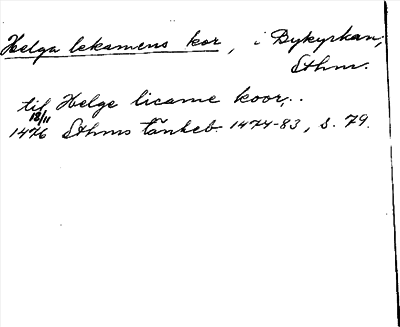 Helga lekamens kor, i Bykyrkan,
Sthm.
til Helge licame koor..
18/11
1476 Sthms tänkeb. 1474-83, s. 79.